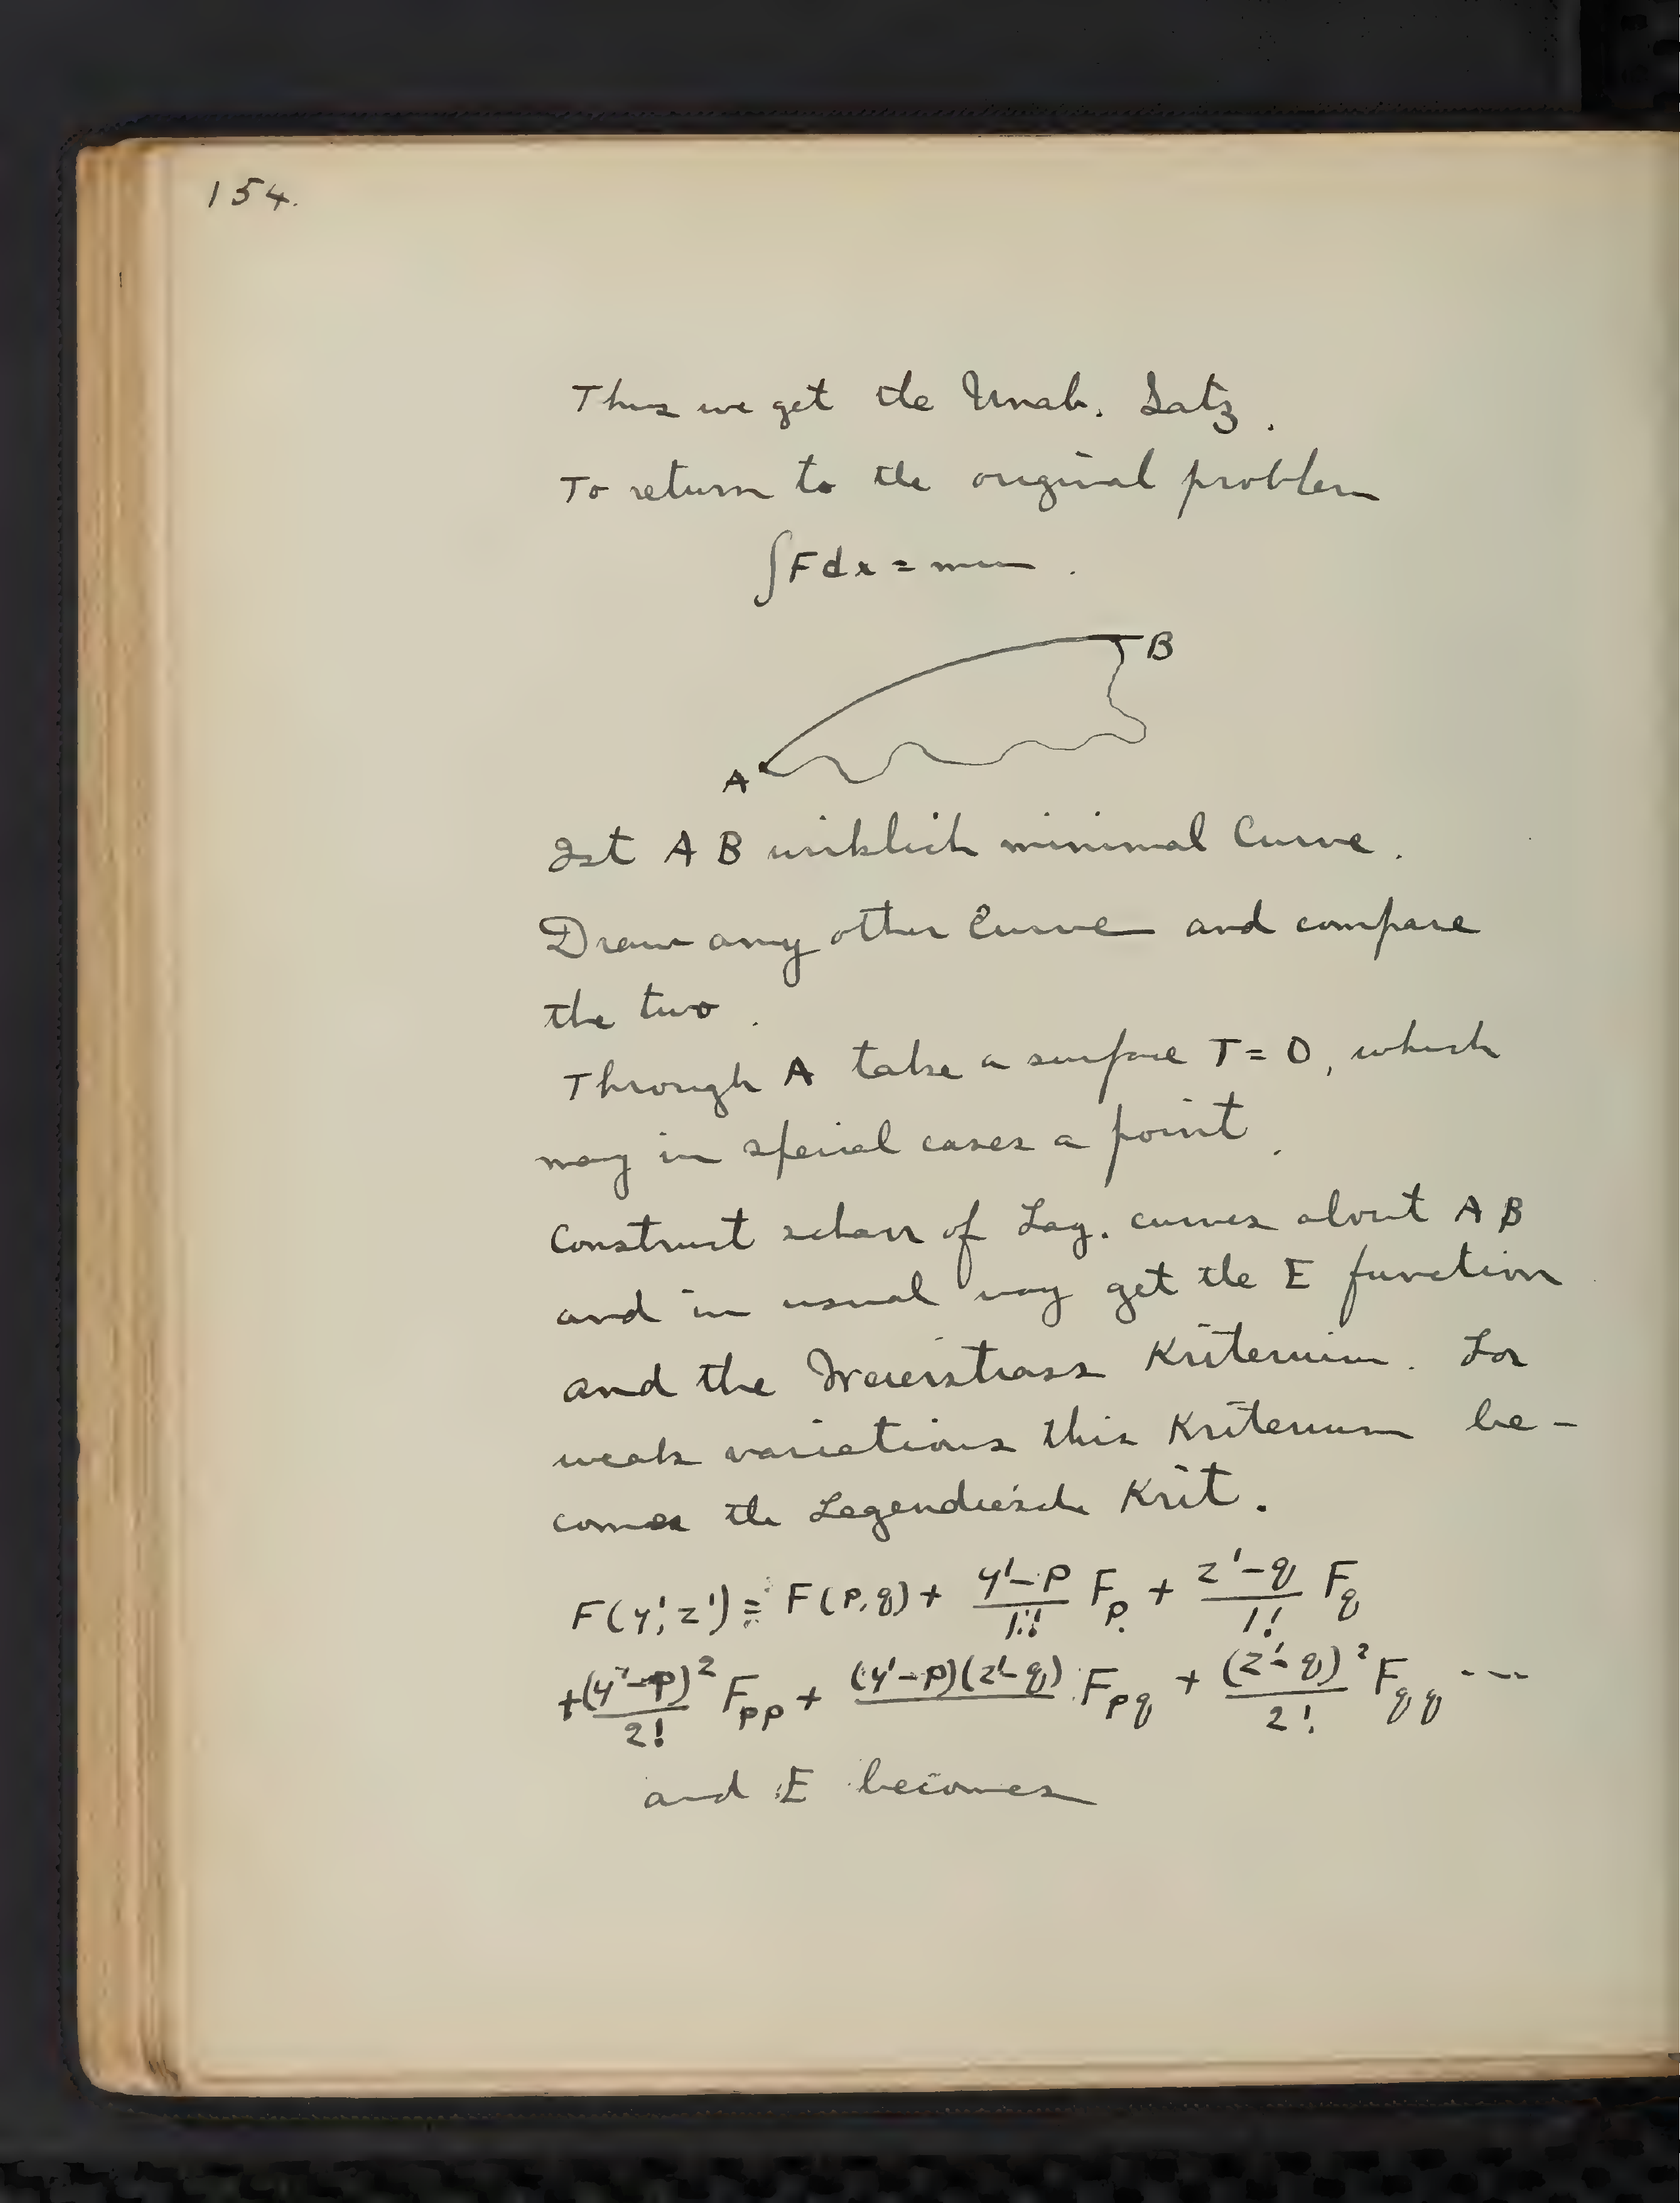 154.
Thus we get the Unab. Satz.
To return to the original problem
∫F dx = min.
B
A
Ist A B wirklich minimal Curve.
Draw any other Curve and compare
the two.
Through A take a surface T = 0, which
may in special cases a point.
Construct schar of Lag. curves about A B
and in usual way get the E function
and the Weierstrass Kriterium. For
weak variations this Kriterium be-
comes the Legendre'sche Krit.
F(y', z') ≡ F(p, q) + (y'-p)/1! F_p + (z'-q)/1! F_q
+ (y'-p)²/2! F_pp + (y'-p)(z'-q) F_pq + (z'-q)²/2! F_qq ---
and E becomes